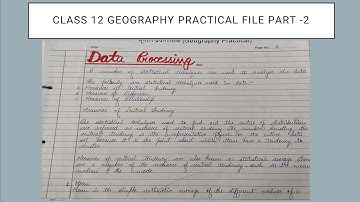 CLASS 12 GEOGRAPHY PRACTICAL FILE PART -2
(Geography Practical)
Date
Page No.
Data Processing
A number of statistical techniques are used to analyse the data
The following are statistical techniques used in data
1. Measures of Central Tendency
2. Measures of Dispersion
3. Measures of Relationship
Measures of Central Tendency
The statistical techniques used to find out the centre of distributions
are referred as measures of central tendency. The number denoting the
central tendency is the representative figure for the entire data
set because it is the point about which items have a tendency to
cluster
Measures of central tendency are also known as statistical averages. There
are a number of the measures of central tendency, such as the mean
median & the mode
1. Mean
Mean is the simple arithmetic average of the different values of a